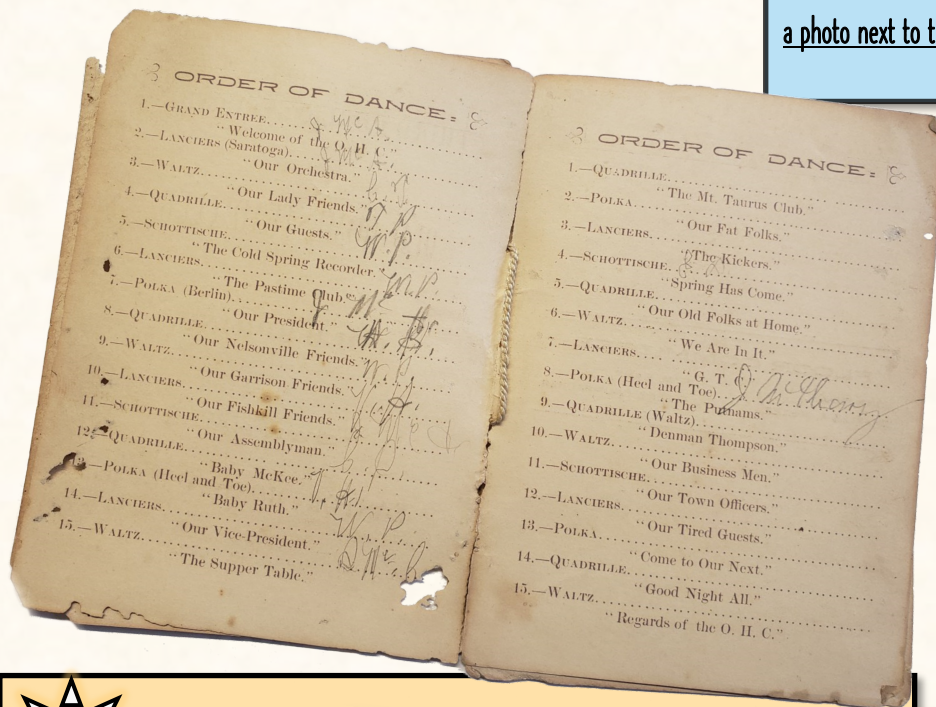 a photo next to t
ORDER OF DANCE:
1.—GRAND ENTREE
"Welcome of the O. H. C."
2.—LANCIERS (Saratoga)
"Our Orchestra."
3.—WALTZ
"Our Lady Friends."
4.—QUADRILLE
"Our Guests."
5.—SCHOTTISCHE
"The Cold Spring Recorder."
6.—LANCIERS
"The Pastime Club."
7.—POLKA (Berlin)
"Our President."
8.—QUADRILLE
"Our Nelsonville Friends."
9.—WALTZ
"Our Garrison Friends."
10.—LANCIERS
"Our Fishkill Friends."
11.—SCHOTTISCHE
"Our Assemblyman."
12.—QUADRILLE
"Baby McKee."
13.—POLKA (Heel and Toe)
"Baby Ruth."
14.—LANCIERS
"Our Vice-President."
15.—WALTZ
"The Supper Table."
J McG
T P
W. P.
W. P.
W. P.
ORDER OF DANCE:
1.—QUADRILLE
"The Mt. Taurus Club."
2.—POLKA
"Our Fat Folks."
3.—LANCIERS
"The Kickers."
4.—SCHOTTISCHE
"Spring Has Come."
5.—QUADRILLE
"Our Old Folks at Home."
6.—WALTZ
"We Are In It."
7.—LANCIERS
"G. T.
8.—POLKA (Heel and Toe)
"The Putnams."
9.—QUADRILLE (Waltz)
"Denman Thompson."
10.—WALTZ
"Our Business Men."
11.—SCHOTTISCHE
"Our Town Officers."
12.—LANCIERS
"Our Tired Guests."
13.—POLKA
"Come to Our Next."
14.—QUADRILLE
"Good Night All."
15.—WALTZ
"Regards of the O. H. C."